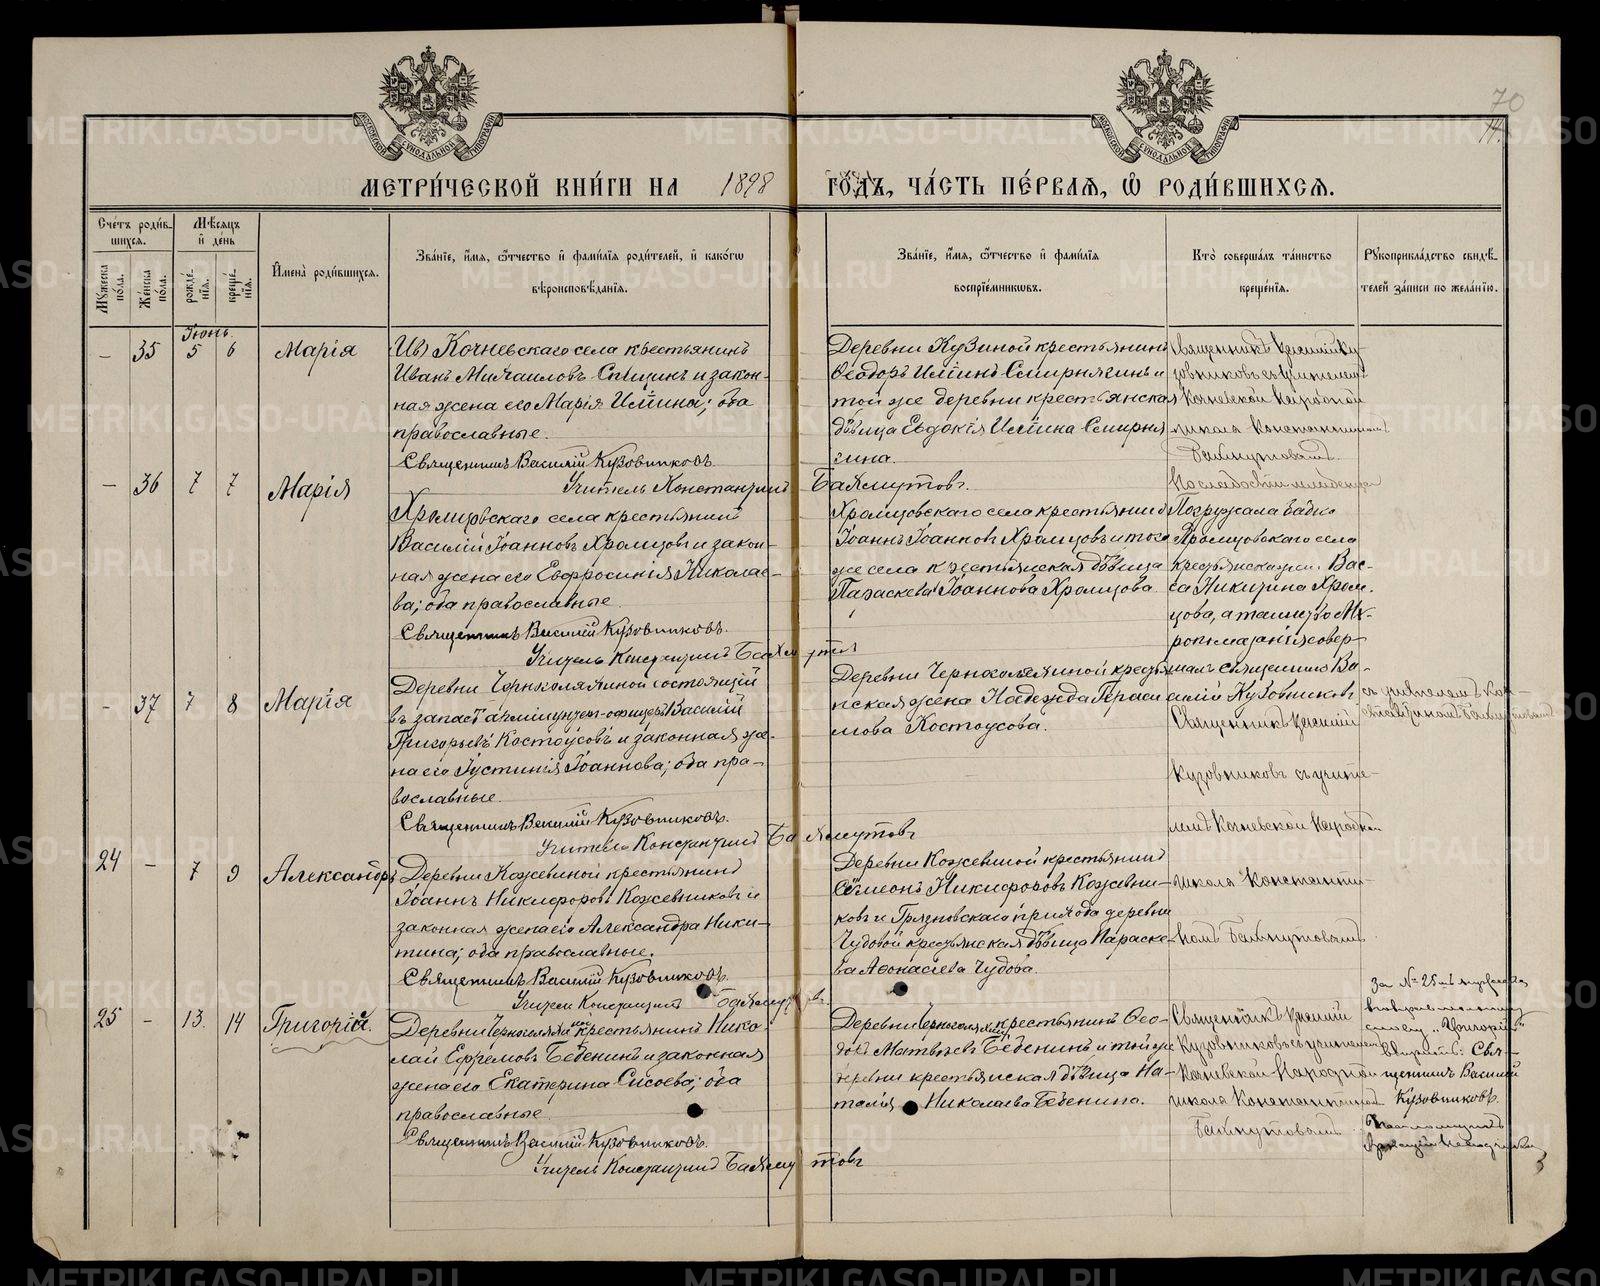 70
14.
МЕТРИ́ЧЕСКОЙ КНИ́ГИ НА 1898 ГО́ДЪ, ЧА́СТЬ ПЕ́РВАѦ, Ѽ РОДИ́ВШИХСѦ.
Сче́тъ роди́вшихсѧ.
Мꙋ́жеска по́ла.
Же́нска по́ла.
Мѣ́сѧцъ и҆ де́нь
рожде́нїѧ.
креще́нїѧ.
И҆мена̀ роди́вшихсѧ.
Зва́нїе, и҆́мѧ, ѻ҆́тчество и҆ фами́лїѧ роди́телей, и҆ како́гѡ
вѣроисповѣ́данїѧ.
Зва́нїе, и҆́мѧ, ѻ҆́тчество и҆ фами́лїѧ
воспрїе́мникѡвъ.
Кто̀ соверша́лъ та́инство
креще́нїѧ.
Рꙋкоприкла́дство свидѣ́-
телей за́писи по жела́нїю.
Іюнь
— 35 5 6 Марія
Кочневскаго села крестьянинъ
Иванъ Михаиловъ Спицинъ и закон-
ная жена его Марія Иліина; оба
православные.
Священникъ Василій Кузовниковъ.
Учитель Константинъ Бахмутовъ.
Деревни Кузиной крестьянинъ
Ѳеодоръ Иліинъ Смирнягинъ и
той же деревни крестьянская
дѣвица Евдокія Иліина Смирня
гина.
Священникъ Василій Ку-
зовниковъ съ учителемъ
Кочневской Народной
школы Константиномъ
Бахмутовымъ.
— 36 7 7 Марія
Хромцовскаго села крестьянинъ
Василій Іоанновъ Хромцовъ и закон-
ная жена его Евфросинія Николае-
ва; оба православные.
Священникъ Василій Кузовниковъ.
Учитель Константинъ Бахмутовъ
Хромцовскаго села крестьянинъ
Іоаннъ Іоанновъ Хромцовъ и того
же села крестьянская дѣвица
Параскева Іоаннова Хромцова
Погружала бабка
Хромцовскаго села
крестьянская Вас-
са Никитина Хром-
цова, а таинство Мѵ-
ропомазанія совер-
шалъ священникъ Ва-
силій Кузовниковъ
съ учителемъ Кон-
стантиномъ Бахмутовымъ
- 37 7 8 Марія
Деревни Черноколяхиной состоящій
въ запасѣ арміи унтеръ-офицеръ Василій
Григорьевъ Костоусовъ и законная же-
на его Іустинія Іоаннова; оба пра-
вославные.
Священникъ Василій Кузовниковъ.
Учитель Константинъ Бахмутовъ
Деревни Черноколяхиной крестья
нская жена Надежда Гераси
мова Костоусова.
Священникъ Василій
Кузовниковъ съ учите-
лемъ Кочневской Народной
школы Константи-
номъ Бахмутовымъ
24 — 7 9 Александръ
Деревни Кожевиной крестьянинъ
Іоаннъ Никифоровъ Кожевниковъ и
законная жена его Александра Ники-
тина; оба православные.
Священникъ Василій Кузовниковъ.
Учитель Константинъ Бахмутовъ.
Деревни Кожевиной крестьянинъ
Симеонъ Никифоровъ Кожевни-
ковъ и Грязновскаго прихода деревни
Чудовой крестьянская дѣвица Параске-
ва Аѳонасіева Чудова.
25 — 13. 14 Григорій.
Деревни Черноколяхиной крестьянинъ Нико-
лай Ефремовъ Бѣденинъ и законная
жена его Екатерина Сисоева; оба
православные.
Священникъ Василій Кузовниковъ.
Учитель Константинъ Бахмутовъ
Деревни Черноколяхиной крестьянинъ Ѳео-
доръ Матвѣевъ Бѣденинъ и той же
деревни крестьянская дѣвица На-
талія Николаева Бѣденина.
Священникъ Василій
Кузовниковъ съ учителемъ
Кочневской Народной
школы Константиномъ
Бахмутовымъ
За № 25мъ
слову „Григорій"
вѣрить: Свя-
щенникъ Василій
Кузовниковъ.
Псаломщикъ